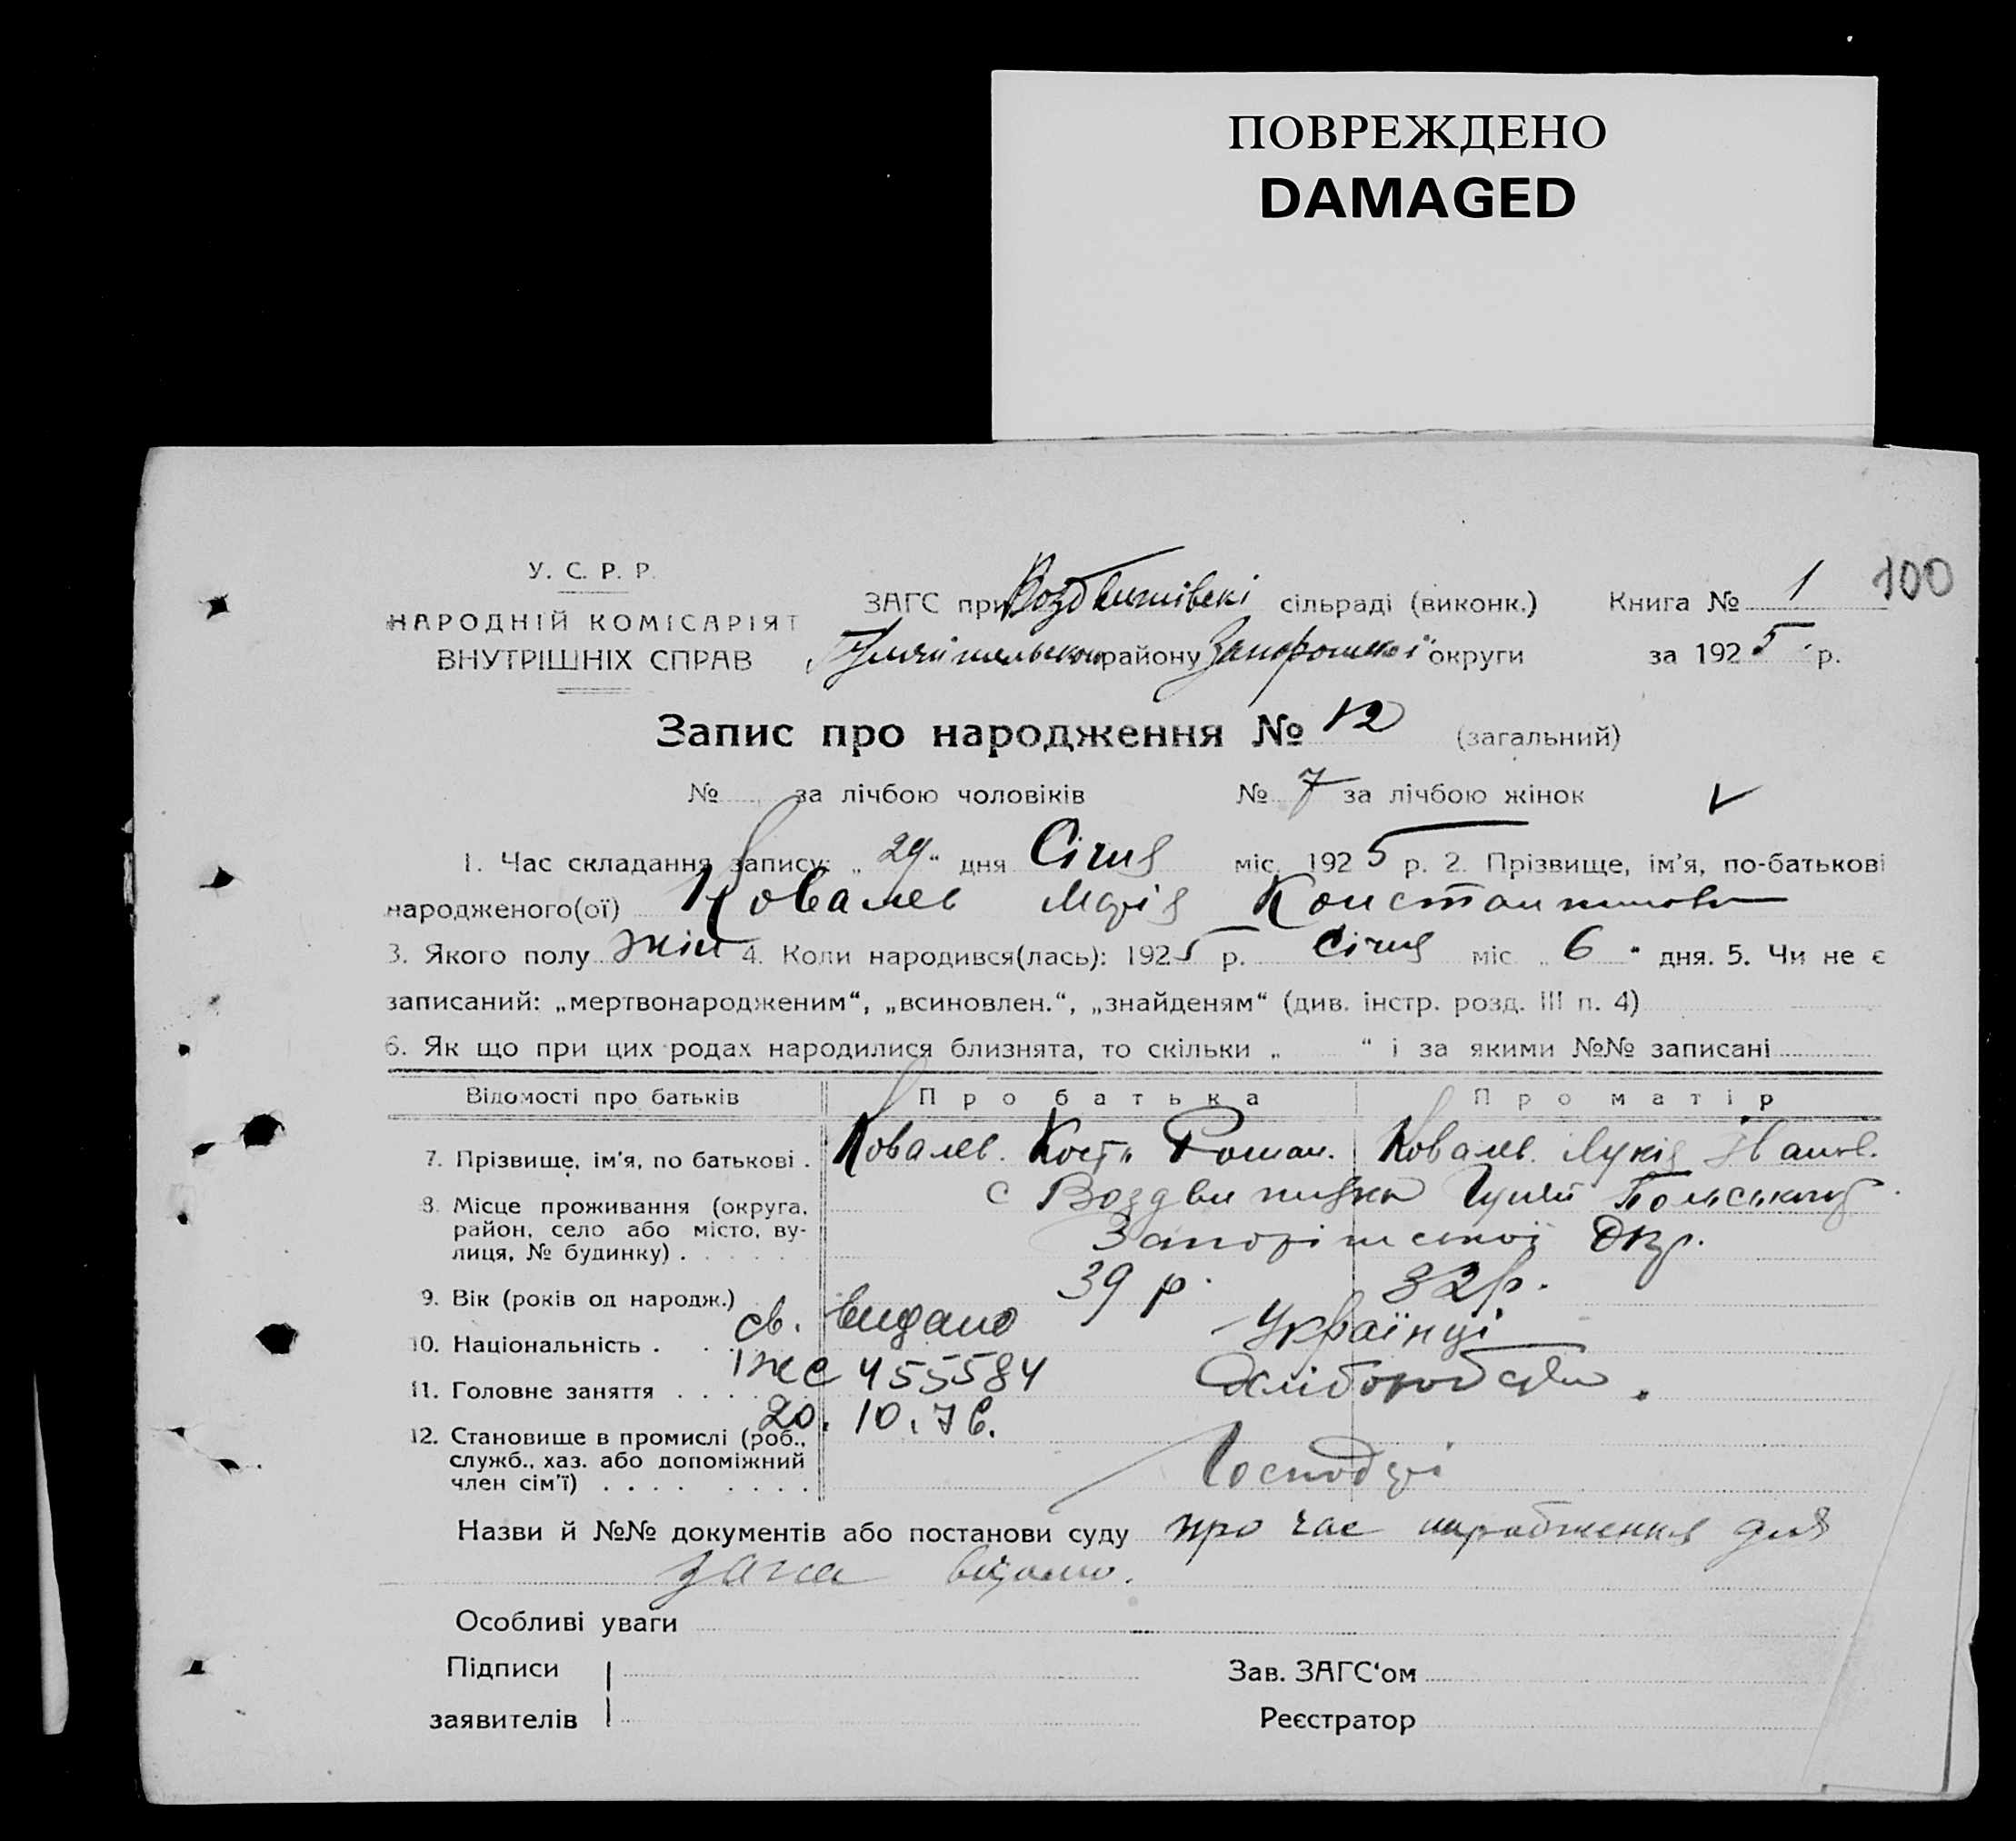 ПОВРЕЖДЕНО
DAMAGED
У. С. Р. Р.
НАРОДНІЙ КОМІСАРІЯТ
ВНУТРІШНІХ СПРАВ
ЗАГС при Воздвижівскі сільраді (виконк.)
району Запорожської округи
Книга № 1
100
за 1925 р.
Запис про народження № 12 (загальний)
№ за лічбою чоловіків № 7 за лічбою жінок
1. Час складання запису: „ 29 “ дня Січня міс. 1925 р. 2. Прізвище, ім’я, по-батькові
народженого(ої) Коваль Марія Константиновна
3. Якого полу жін 4. Коли народився(лась): 1925 р. Січня міс „ 6 “ дня. 5. Чи не є
записаний: „мертвонародженим“, „всиновлен.“, „знайденям“ (див. інстр. розд. III п. 4)
6. Як що при цих родах народилися близнята, то скільки „ “ і за якими №№ записані
Відомості про батьків Про батька Про матір
7. Прізвище, ім’я, по батькові . Коваль Кость Роман. Коваль Лукія Іванов.
8. Місце проживання (округа, район, село або місто, вулиця, № будинку) . с Воздвижівка
Запоріжської Окр.
9. Вік (років од народж.) 39 р. 32 р.
св. видано
10. Національність . Українці
І же 455584
11. Головне заняття . Хліборобство.
20.10.76.
12. Становище в промислі (роб.,
служб., хаз. або допоміжний
член сім’ї) . Господарі
Назви й №№ документів або постанови суду про час народження для
загса відомо.
Особливі уваги
Підписи Зав. ЗАГС‘ом
заявителів Реєстратор